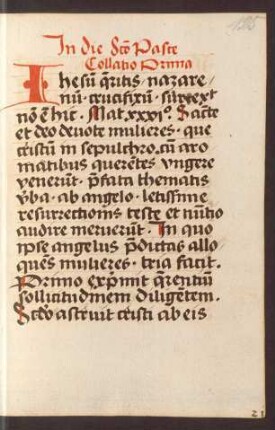 In die scō Pasce
Collatio Prima
Ihesū q̄ritis nazare-
nū crucifixū · surrexit
nō ē hic · Mat · xxxiº · Sācte
et deo deuote mulieres · que
cristū in sepulchro cū aro
matibus querētes vngere
venerūt · p̄fata thematis
v̄ba · ab angelo · letissime
resurrectiōis teste et nūtio
audire meruerūt · In quo
ipse angelus p̄dictas allo
quēs mulieres · tria facit ·
Primo exp̄mit q̄rentiū
sollicitudinem diligētem ·
Scdo astruit cristi ab eis
21